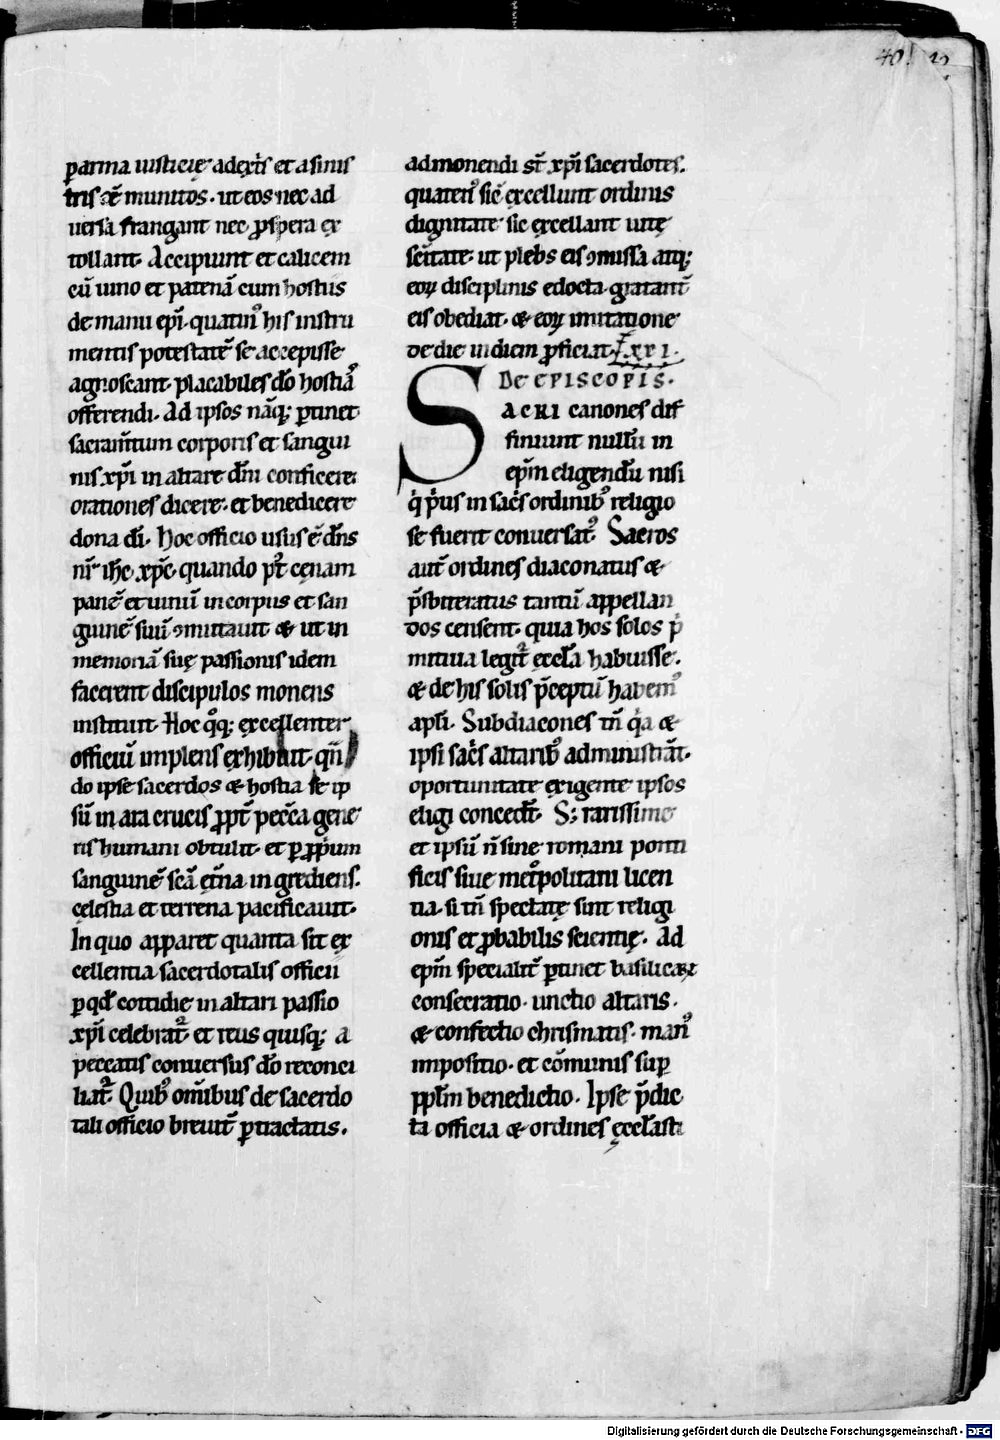 40.
ꝑarma iusticię adext̃s et asinis
tris ee̅ munitos. ut eos nec ad
uersa frangant nec ꝓspera ex
tollant. Accipiunt et calicem
cũ uino et patenã cum hostiis
de manu epĩ. quatin᷒ his instru
mentis potestatẽ se accepisse
agnoscant. placabiles dõ hostiã
offerendi. Ad ipsos nãq; ꝑtinet
sacram̃tum corporis et sangui
nis xp̃i in altare dñi conficere.
orationes dicere. et benedicere
dona dĩ. Hoc officio usus ẽ dñs
nr̃ ihc̅ xp̃c. quando pꝰt cęnam
panẽ et uinũ in corpus et san
guinẽ suũ ꝯmutauit. & ut in
memoriã suę passionis idem
facerent discipulos monens
instituit. Hoc q̊q; excellenter
officiũ implens exhibuit. qñ
do ipse sacerdos & hostia se ip
sũ in ara crucis ꝓpt̃ pecc̃a gene
ris humani obtulit. et ꝑ ꝓpriũm
sanguinẽ scã et̃na ingrediens.
cęlestia et terrena pacificauit.
In quo apparet quanta sit ex
cellentia sacerdotalis officii
ꝑ qđ cottidie in altari passio
xp̃i celebrat᷑. et reus quisq; a
peccatis conuersus dõ reconci
liat᷑. Quib᷒ om̃ibus de sacerdo
tali officio breuit̃ ꝑtractatis.
admonendi st̃ xp̃i sacerdotes.
quaten᷒ sic̃ excellunt ordinis
dignitate sic excellant uitę
sc̃itate. ut plebs eis ꝯmissa atq;
eoꝝ disciplinis edocta. gratant̃
eis obediat. & eoꝝ imitatione
de die in diem ꝓficiat. Lxxi.
De episcopis.
Sacri canones dif
finiunt nullũ in
ep̃m eligendũ nisi
q̇ pi̇us in sac̃s ordinib᷒ religio
se fuerit conuersat᷒. Sacros
aut̃ ordines diaconatus &
p̃sbiteratus tantũ appellan
dos censent. quia hos solos p̃
mitiua legit᷑ ęccl̃a habuisse.
& de his solis p̃ceptũ habem᷒
apl̃i. Subdiacones tñ q̃a &
ipsi sac̃s altarib᷒ administrãt.
oportunitate exigente ipsos
eligi concedit᷑. S; rarissime
et ipsũ ñ sine romani ponti
ficis siue met̊politani licen
tia. si tñ spectatę sint religi
onis et ꝓbabilis scientię. Ad
ep̃m specialit̃ ꝑtinet basilicaꝝ
consecratio. unctio altaris.
& confectio chrismatis. man᷒
impositio. et cõmunis suꝑ
ppl̃m benedictio. Ipse p̃dic
ta officia & ordines ęccl̃asti
Digitalisierung gefördert durch die Deutsche Forschungsgemeinschaft - DFG